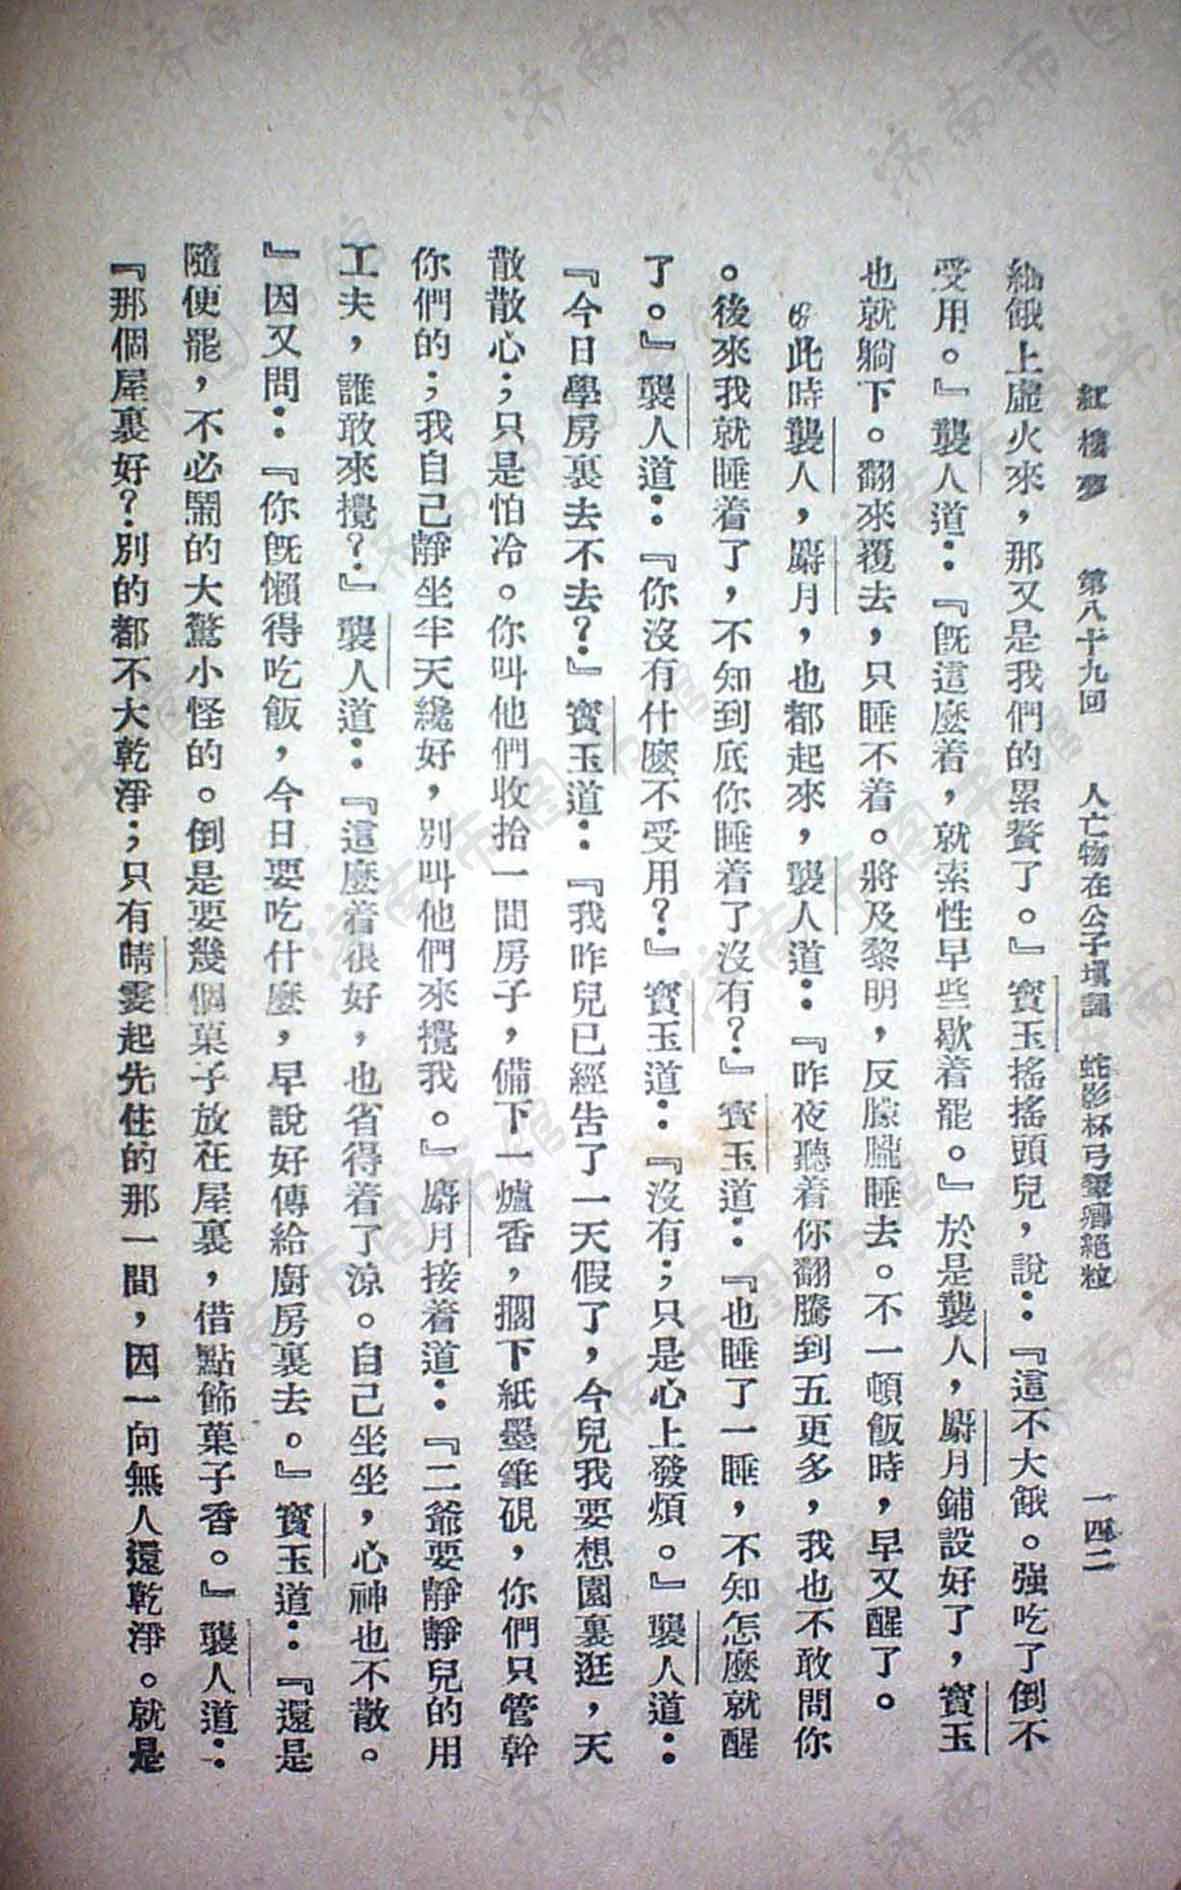 紅樓夢　第八十九回　人亡物在公子塡詞　蛇影杯弓顰卿絕粒　一四二
細餓上虛火來，那又是我們的累贅了。』寶玉搖搖頭兒，說：『這不大餓。强吃了倒不
受用。』襲人道：『旣這麼着，就索性早些歇着罷。』於是襲人，麝月鋪設好了，寶玉
也就躺下。翻來覆去，只睡不着。將及黎明，反朦朧睡去。不一頓飯時，早又醒了。
6此時襲人，麝月，也都起來，襲人道：『昨夜聽着你翻騰到五更多，我也不敢問你
。後來我就睡着了，不知到底你睡着了沒有？』寶玉道：『也睡了一睡，不知怎麼就醒
了。』襲人道：『你沒有什麼不受用？』寶玉道：『沒有；只是心上發煩。』襲人道：
『今日學房裏去不去？』寶玉道：『我昨兒已經告了一天假了，今兒我要想園裏逛，天
散散心；只是怕冷。你叫他們收拾一間房子，備下一爐香，擱下紙墨筆硯，你們只管幹
你們的；我自己靜坐半天纔好，別叫他們來攪我。』麝月接着道：『二爺要靜靜兒的用
工夫，誰敢來攪？』襲人道：『這麼着很好，也省得着了涼。自己坐坐，心神也不散。
』因又問：『你旣懶得吃飯，今日要吃什麼，早說好傳給廚房裏去。』寶玉道：『還是
隨便罷，不必鬧的大驚小怪的。倒是要幾個菓子放在屋裏，借點飾菓子香。』襲人道：
『那個屋裏好？別的都不大乾淨；只有晴雯起先住的那一間，因一向無人還乾淨。就是
济南市图书馆